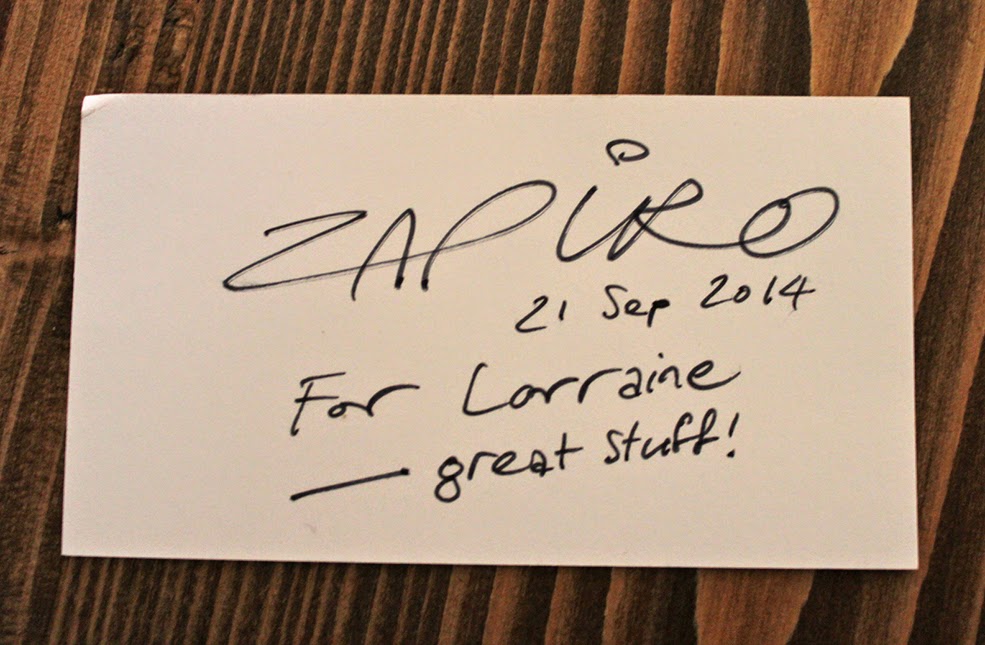 ZAPIRO
21 Sep 2014
For Lorraine
— great stuff!